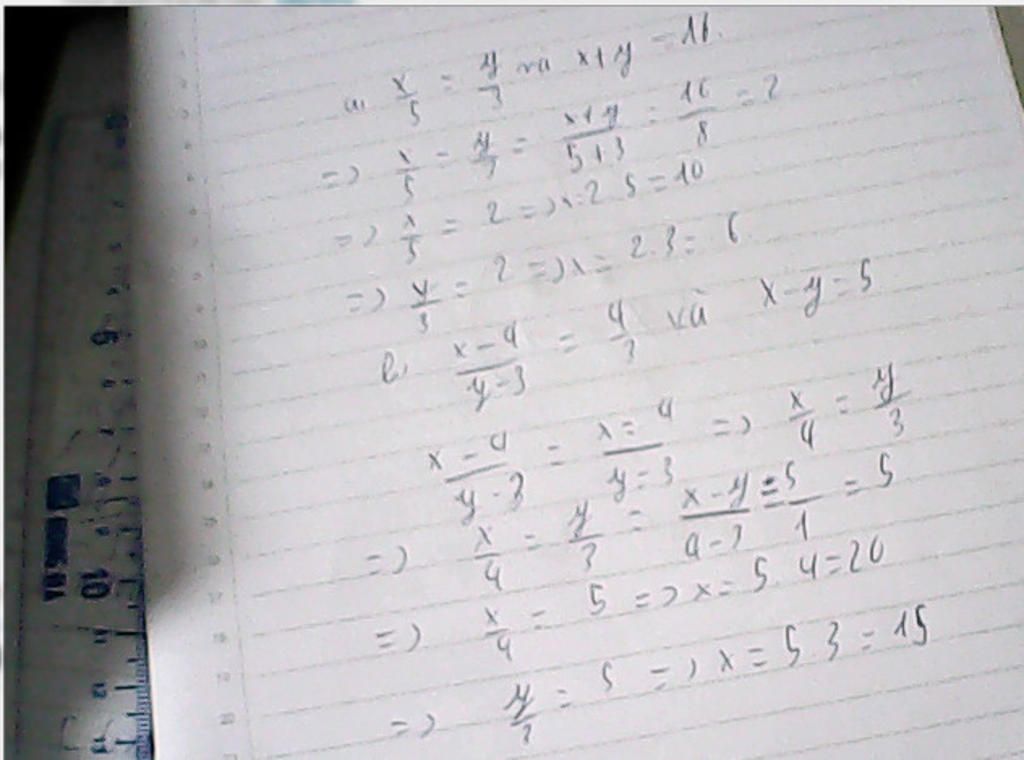 a, x/5 = y/3 và x+y = 16.
=> x/5 = y/3 = x+y/5+3 = 16/8 = 2
=> x/5 = 2 => x=2.5=10
=> y/3 = 2 => x= 2.3= 6
b, x-4/y-3 = 4/3 và x-y=5
x-4/y-3 = x=4/y=3 => x/4 = y/3
=> x/4 = y/3 = x-y/4-3 = 5/1 = 5
=> x/4 = 5 => x= 5.4=20
=> y/3 = 5 => x= 5 3 =15
5
10
11
12
13